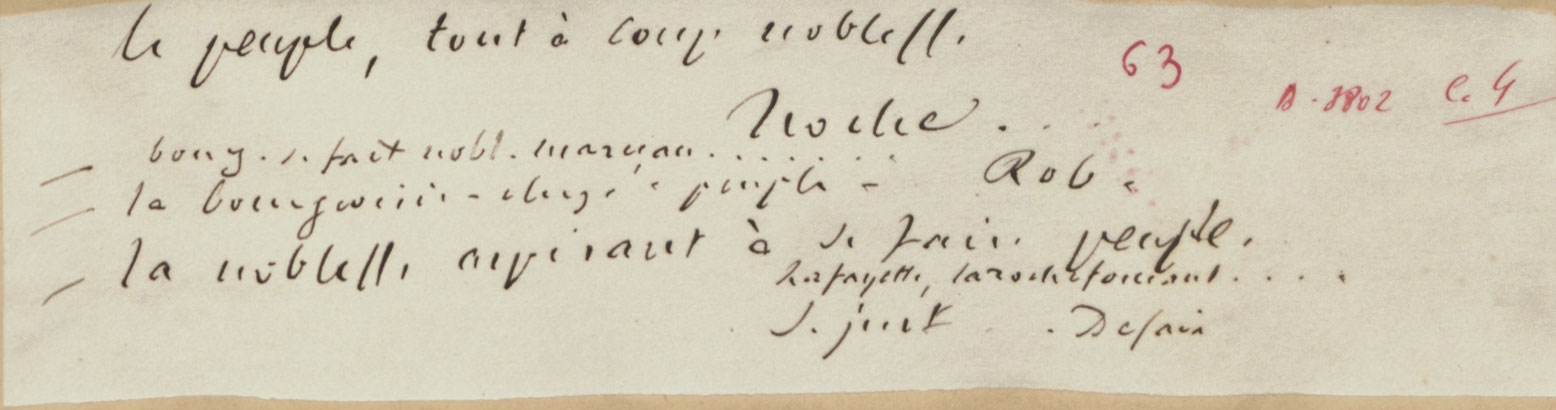 le peuple, tout à coup noblesse.
63
C. 4
Hoche . . .
— bourg. se fait nobl. marceau . . . . . .
— la bourgeoisie - peuple - Rob.
— la noblesse, aspirant à se faire peuple.
Lafayette, larochefoucaut . . . .
S. just . . Desaix